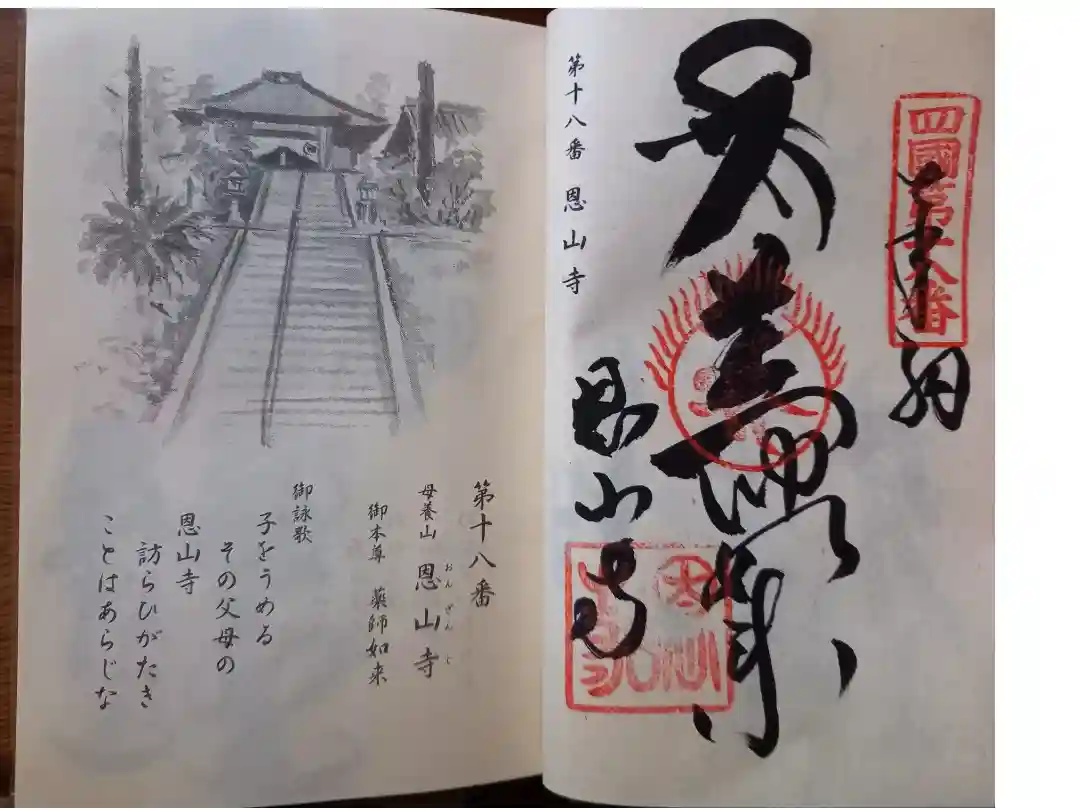 四國第十八番
奉納
恩山寺
第十八番 恩山寺
第十八番
母養山 恩山寺
おんざんじ
御本尊 薬師如来
御詠歌
子をうめる
その父母の
恩山寺
訪らひがたき
ことはあらじな